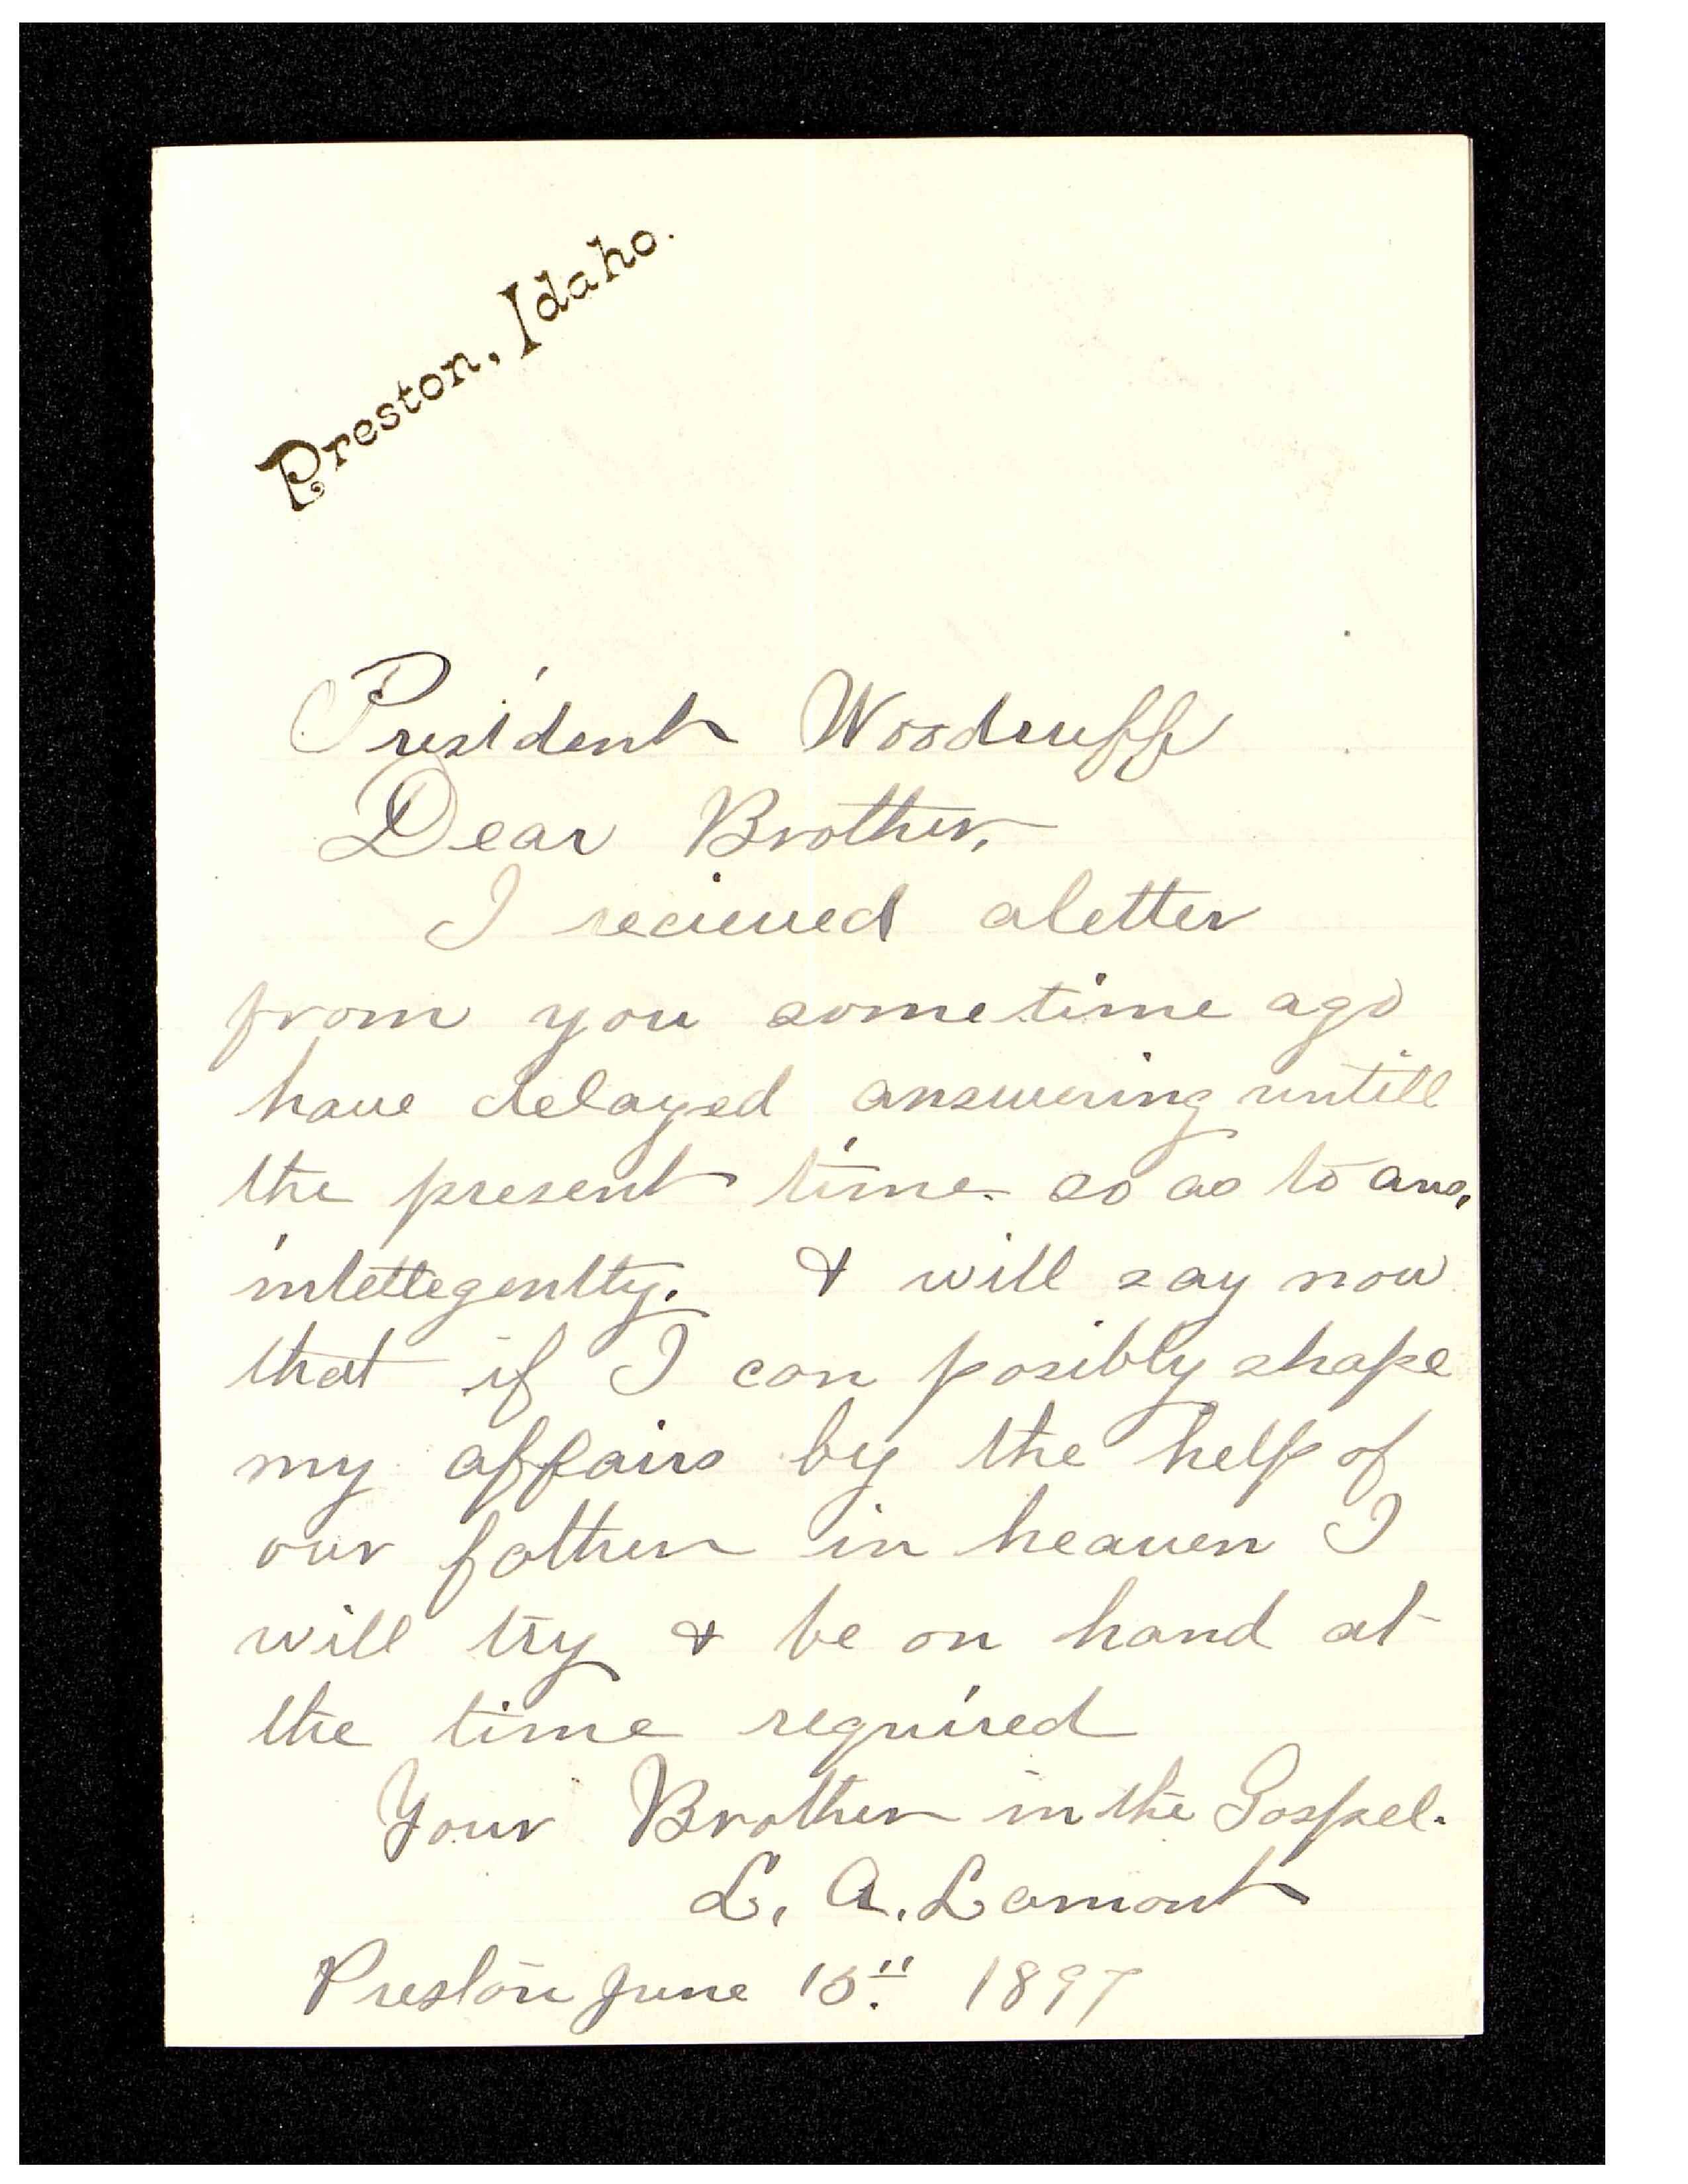 Preston, Idaho.
President Woodruff
Dear Brother,
I recieved a letter
from you sometime ago
have delayed answering untill
the present time so as to ans,
intellegently. & will say now
that if I can posibly shape
my affairs by the help of
our father in heaven I
will try & be on hand at
the time required
Your Brother in the Gospel.
L. A. Lamont
Preston June 15" 1897